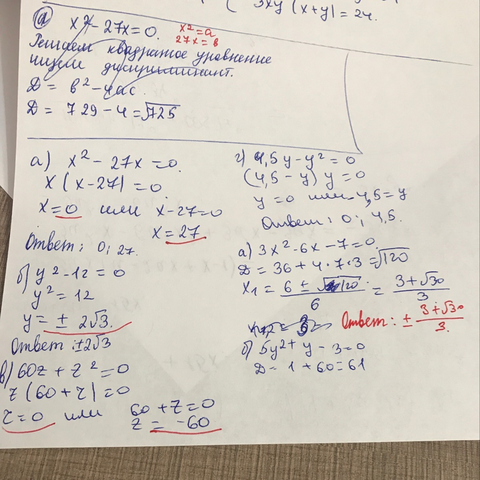 3xy(x+y)=24.
а) x²-27x=0.
x²=a
27x=b
Решаем квадратное уравнение
ищем дискриминант.
D = b²-4ac.
D = 729-4=√725
а) x²-27x=0.
x(x-27)=0
x=0 или x-27=0
x=27
Ответ: 0; 27.
б) y²-12=0
y²=12
y=±2√3
Ответ: ±2√3
в) 60z+z²=0
z(60+z)=0
z=0 или 60+z=0
z=-60
г) 4,5y-y²=0
(4,5-y)y=0
y=0 или 4,5=y
Ответ: 0; 4,5.
а) 3x²-6x-7=0.
D=36+4·7·3=√120
x₁= (6±√120)/6 = (3+√30)/3
Ответ: ± (3+√30)/3.
б) 5y²+y-3=0
D=1+60=61